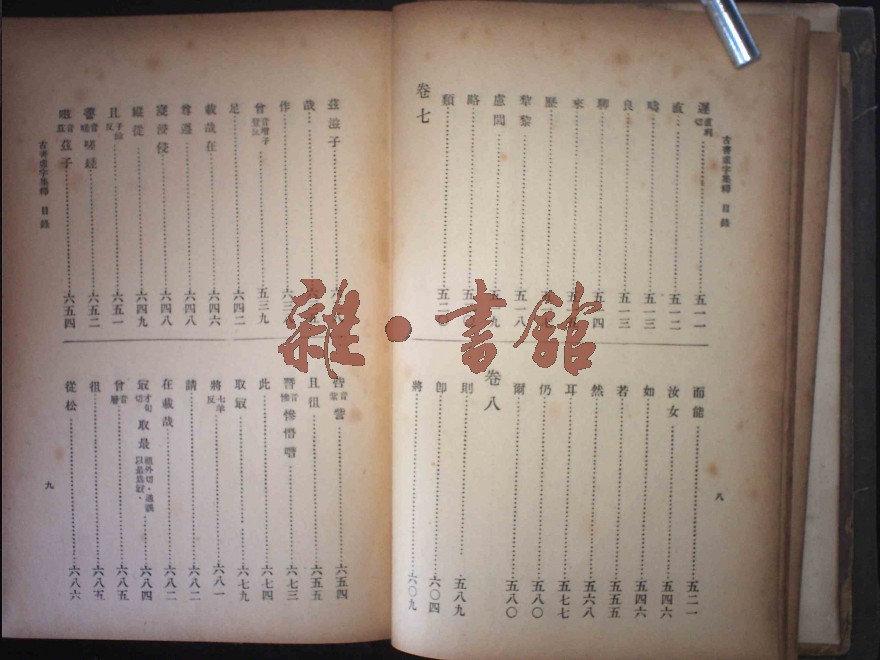 古書虛字集釋 目錄
遲 直利切 五一一
直 五一二
疇 五一三
良 五一三
聊 五一四
來
歷
黎黎 五一八
慮閭
路
類
卷七
而能 五二一
汝女 五四六
如 五四六
若 五五五
然 五六八
耳 五七七
仍 五八〇
爾 五八〇
卷八
則 五八九
即 六〇四
將 六〇九
八
茲滋子
哉
作
曾 五三九
足 六四二
載哉在 六四六
尊遵 六四八
寖浸侵 六四八
縱從 六四九
且 子余反 六五一
嗟 六五二
茲子 六五四
古書虛字集釋 目錄
訾 六五四
且徂 六五五
朁 音慘 慘憯噆 六七三
此 六七四
取冣 六七九
將 七羊反 六八一
請 六八二
在載哉 六八二
冣 才句切 取最 祖外切 六八四
曾 音層 六八五
徂 六八五
從松 六八六
九
雜·書館